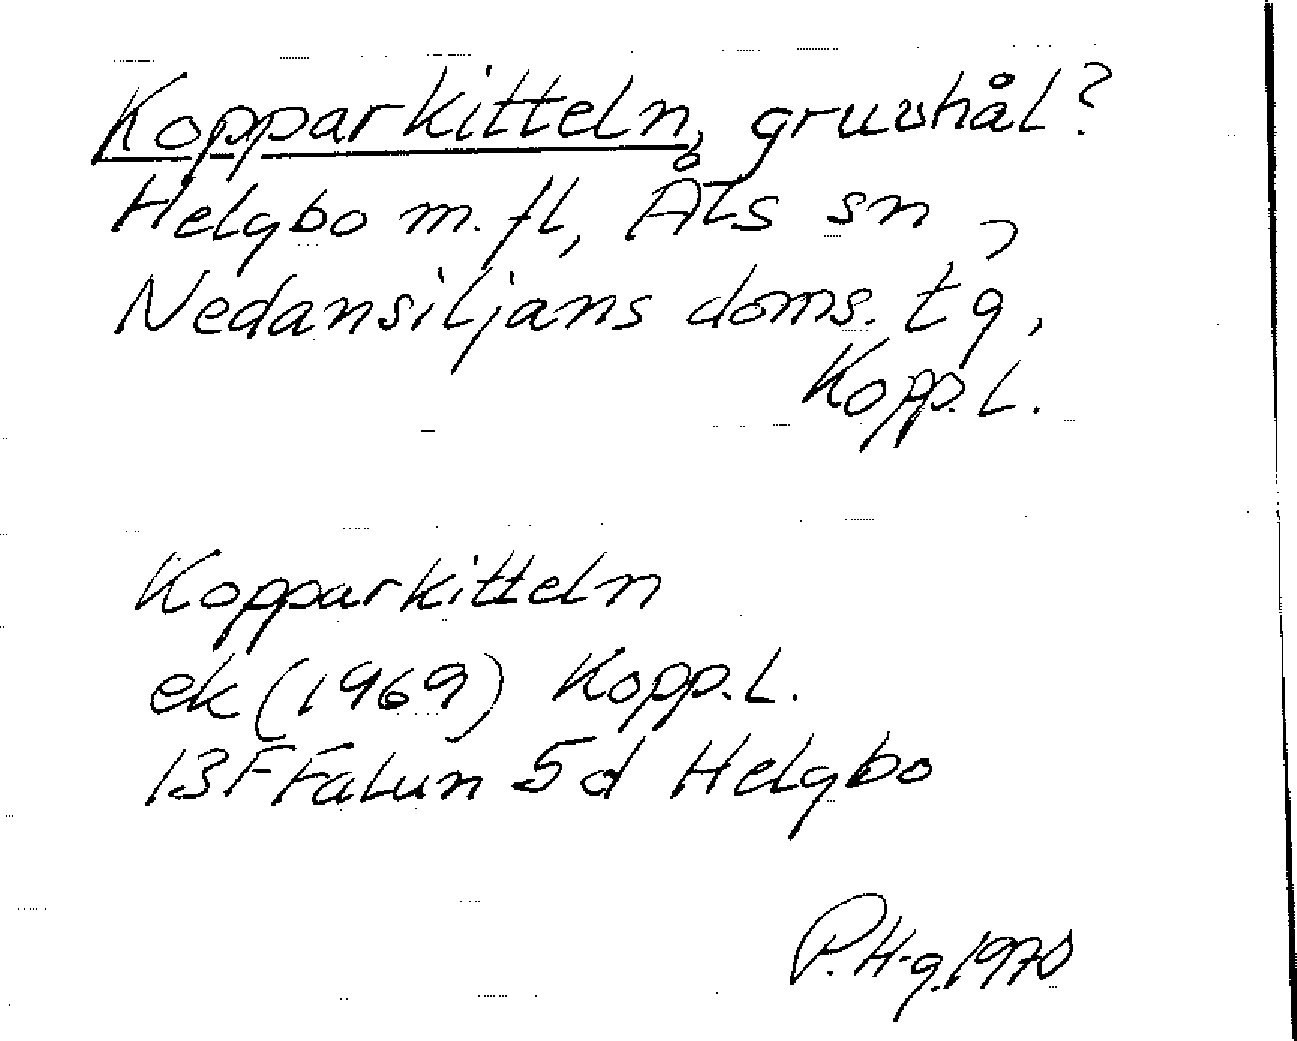 Kopparkitteln, gruvhål?
Helgbo m.fl, Åls sn,
Nedansiljans doms. tg,
Kopp.L.
Kopparkitteln
ek (1969) Kopp.L.
13F Falun 5d Helgbo
P.H-g.1970